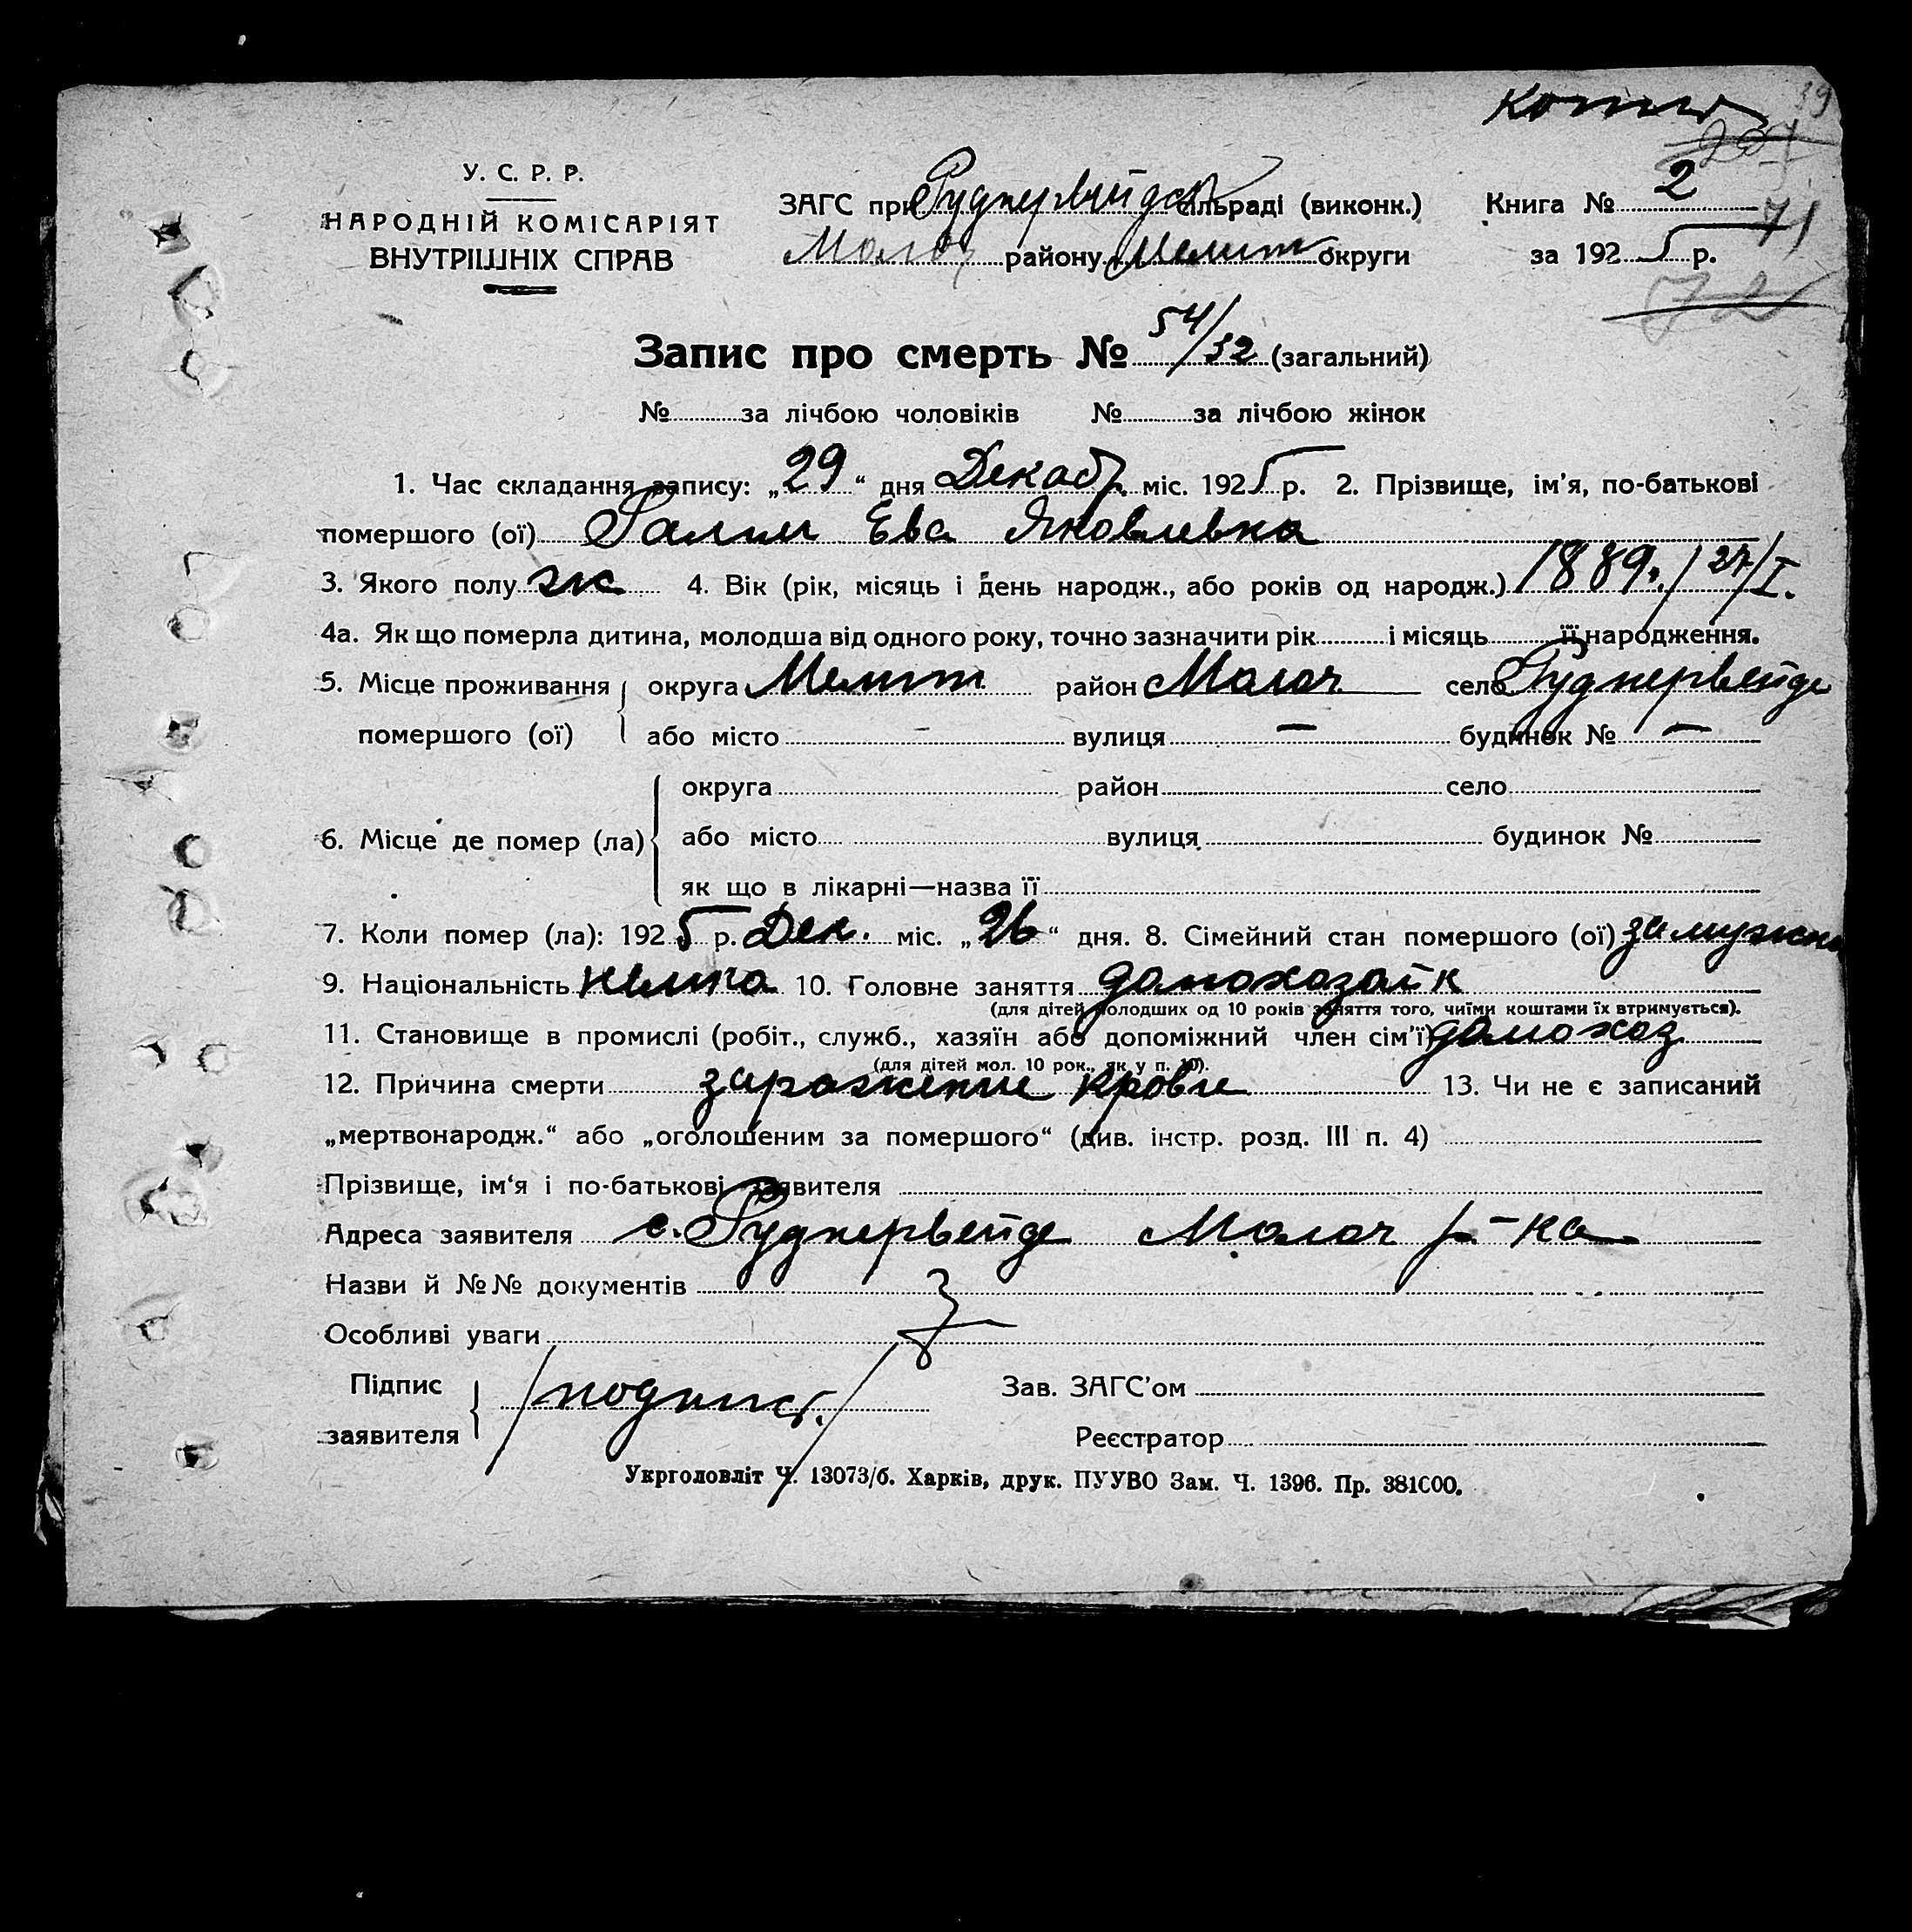 копия
39
207
У. С. Р. Р.
НАРОДНІЙ КОМІСАРІЯТ
ВНУТРІШНІХ СПРАВ
ЗАГС при Руднервейдск сільраді (виконк.)
Молоч району Мелит округи
Книга № 2
71
за 1925 р.
72
Запис про смерть № 54/32 (загальний)
№ за лічбою чоловіків № за лічбою жінок
1. Час складання запису: „29“ дня Декабр. міс. 1925 р. 2. Прізвище, ім’я, по-батькові
помершого (ої) Ева Яковлевна
3. Якого полу ж 4. Вік (рік, місяць і день народж., або років од народж.) 1889. /27/I.
4а. Як що померла дитина, молодша від одного року, точно зазначити рік і місяць її народження.
5. Місце проживання помершого (ої) округа Мелит. район Молоч село Руднервейде
або місто – вулиця – будинок № –
6. Місце де помер (ла) округа район село
або місто вулиця будинок №
як що в лікарні—назва її
7. Коли помер (ла): 1925 р. Дек. міс. „26“ дня. 8. Сімейний стан помершого (ої) замужня
9. Національність немка 10. Головне заняття домохозайк
(для дітей молодших од 10 років заняття того, чиїми коштами їх втримується).
11. Становище в промислі (робіт., служб., хазяїн або допоміжний член сім’ї) домохоз
(для дітей мол. 10 рок., як у п. 10).
12. Причина смерти заражение крови 13. Чи не є записаний
„мертвонародж.“ або „оголошеним за помершого“ (див. інстр. розд. III п. 4)
Прізвище, ім‘я і по-батькові заявителя
Адреса заявителя с. Руднервейде Молоч р-ка
Назви й №№ документів
Особливі уваги
Підпис заявителя /подпис./ Зав. ЗАГС’ом
Реєстратор
Укрголовліт Ч. 13073/б. Харків, друк. ПУУВО Зам. Ч. 1396. Пр. 381000.